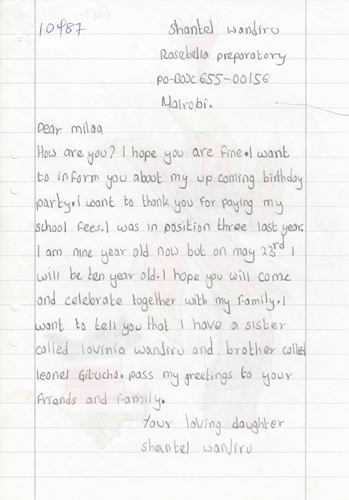 10987
Shantel wanjiru
Rosebella preparatory
Po-Box 655-00156
Nairobi.
Dear milaa
How are you? I hope you are fine. I want
to inform you about my up coming birthday
party. I want to thank you for paying my
school fees. I was in position three last year.
I am nine year old now but on may 23rd I
will be ten year old. I hope you will come
and celebrate together with my family. I
want to tell you that I have a sister
called lavinia wanjiru and brother called
leonel Gitucha. pass my greetings to your
friends and family.
Your loving daughter
shantel wanjiru